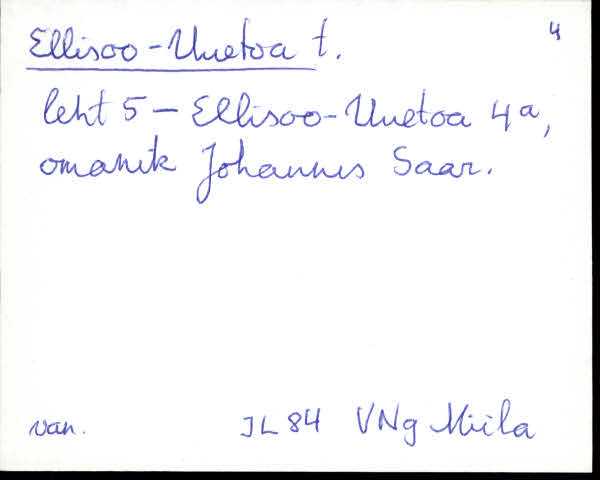 4
Ellisoo-Uuetoa t.
leht 5 – Ellisoo-Uuetoa 4a,
omanik Johannes Saar.
van. JL 84 VNg Miila